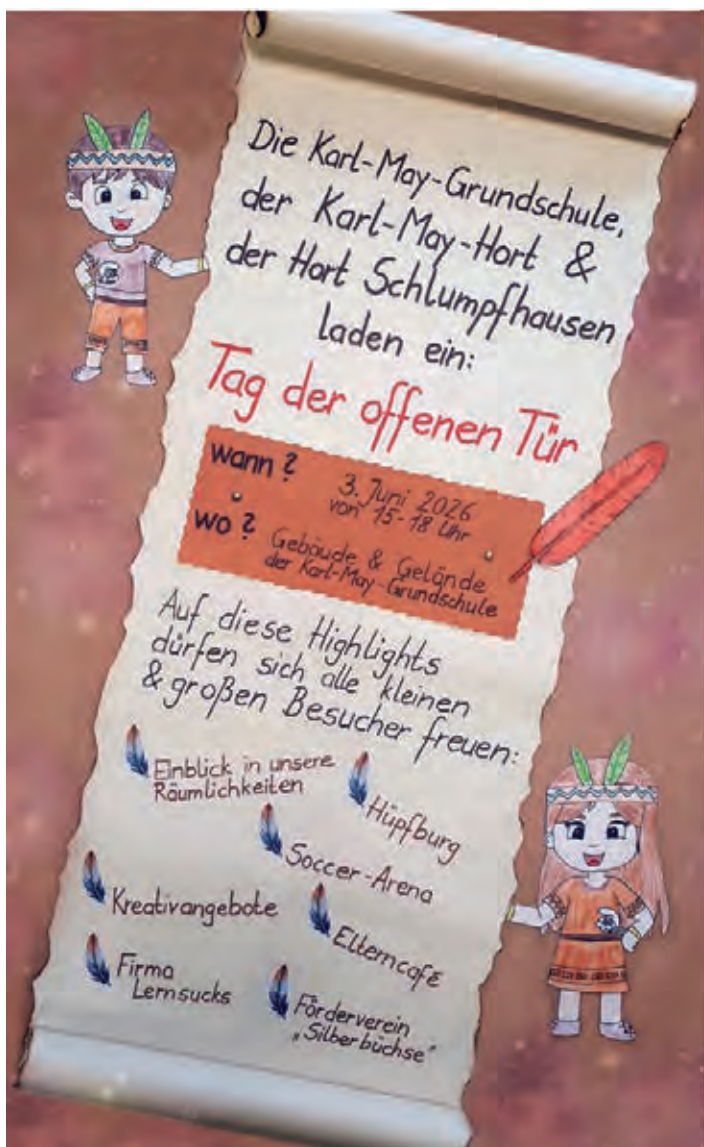 Die Karl-May-Grundschule,
der Karl-May-Hort &
der Hort Schlumpfhausen
laden ein:
Tag der offenen Tür
wann?
3. Juni 2026
von 15-18 Uhr
wo?
Gebäude & Gelände
der Karl-May-Grundschule
Auf diese Highlights
dürfen sich alle kleinen
& großen Besucher freuen:
Einblick in unsere
Räumlichkeiten
Hüpfburg
Soccer-Arena
Kreativangebote
Elterncafé
Firma
Lernsucks
Förderverein
„Silberbüchse"